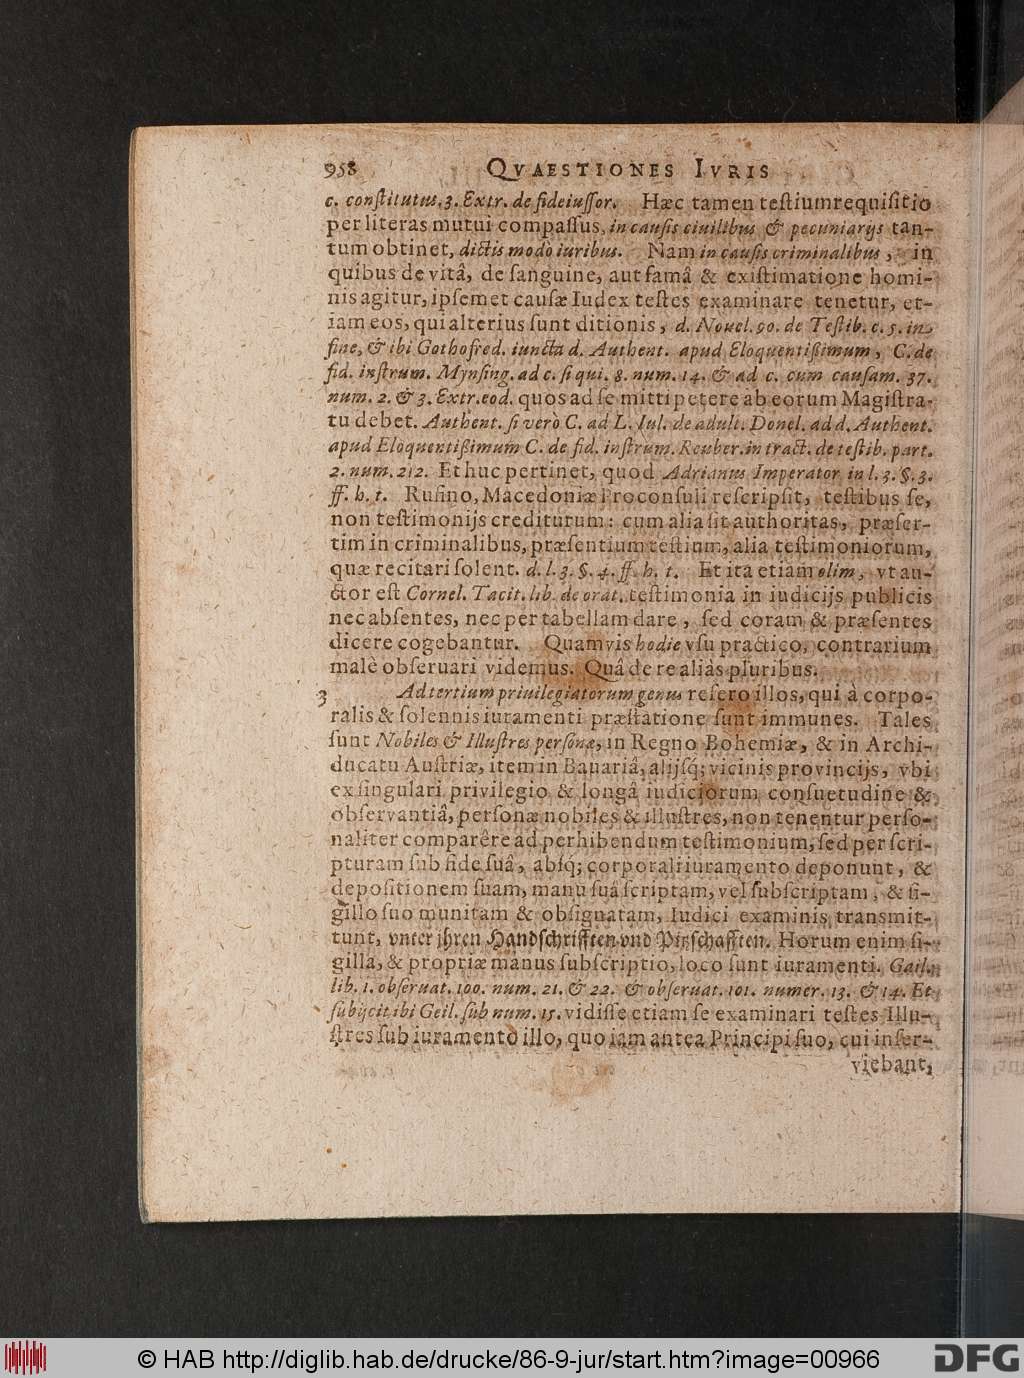 958 QVAESTIONES IVRIS
c. constitutus. 3. Extr. de fideiussor. Hæc tamen testium requisitio
per literas mutui compassus, in causis ciuilibus & pecuniarijs tan-
tum obtinet, dictis modò iuribus. Nam in causis criminalibus, in
quibus de vitâ, de sanguine, aut famâ & existimatione homi-
nis agitur, ipsemet causæ Iudex testes examinare tenetur, et-
iam eos, qui alterius sunt ditionis, d. Nouel. 90. de Testib. c. 5. in
fine, & ibi Gothofred. iuncta d. Authent. apud Eloquentißimum, C. de
fid. instrum. Mynsing. ad c. si qui. 8. num. 14. & ad c. cum causam. 37.
num. 2. & 3. Extr. eod. quos ad se mitti petere ab eorum Magistra-
tu debet. Authent. si verò C. ad L. Iul. de adult. Donel. ad d. Authent.
apud Eloquentißimum C. de fid. instrum. Reuber. in tract. de testib. part.
2. num. 212. Et huc pertinet, quod Adrianus Imperator in l. 3. §. 3.
ff. h. t. Rufino, Macedoniæ Proconsuli rescripsit, testibus se,
non testimonijs crediturum: cum alia sit authoritas, præser-
tim in criminalibus, præsentium testium, alia testimoniorum,
quæ recitari solent. d. l. 3. §. 4. ff. h. t. Et ita etiam olim, vt au-
ctor est Cornel. Tacit. lib. de orat. testimonia in iudicijs publicis
nec absentes, nec per tabellam dare, sed coram & præsentes
dicere cogebantur. Quamvis hodie vsu practico, contrarium
malè obseruari videmus. Quâ de re aliàs pluribus.
3 Ad tertium priuilegiatorum genus refero illos, qui à corpo-
ralis & solennis iuramenti præstatione sunt immunes. Tales
sunt Nobiles & Illustres personæ, in Regno Bohemiæ, & in Archi-
ducatu Austriæ, item in Bauariâ, alijsq́; vicinis provincijs, vbi
ex singulari privilegio & longâ iudiciorum consuetudine &
obseruantiâ, personæ nobiles & illustres, non tenentur perso-
naliter comparêre ad perhibendum testimonium, sed per scri-
pturam sub fide suâ, absq́; corporali iuramento deponunt, &
depositionem suam, manu suâ scriptam, vel subscriptam, & si-
gillo suo munitam & obsignatam, Iudici examinis transmit-
tunt, vnter jhren Handschrifften vnd Pitzschafften. Horum enim si-
gilla, & propriæ manus subscriptio, loco sunt iuramenti. Gail.
lib. 1. obseruat. 100. num. 21. & 22. & obseruat. 101. numer. 13. & 14. Et
subijcit ibi Geil. sub num. 15. vidisse etiam se examinari testes Illu-
stres sub iuramento illo, quo iam antea Principi suo, cui inser-
viebant,
© HAB http://diglib.hab.de/drucke/86-9-jur/start.htm?image=00966
DFG